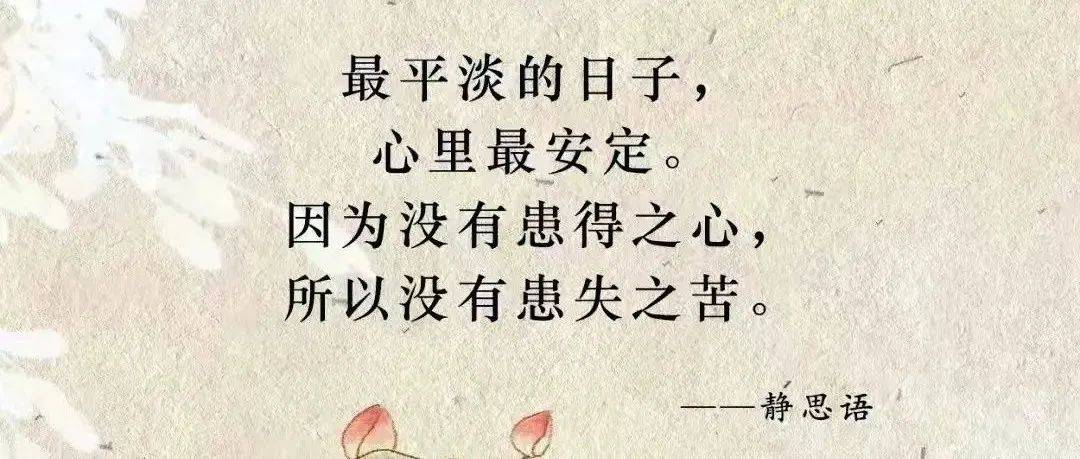 最平淡的日子，
心里最安定。
因为没有患得之心，
所以没有患失之苦。
——静思语